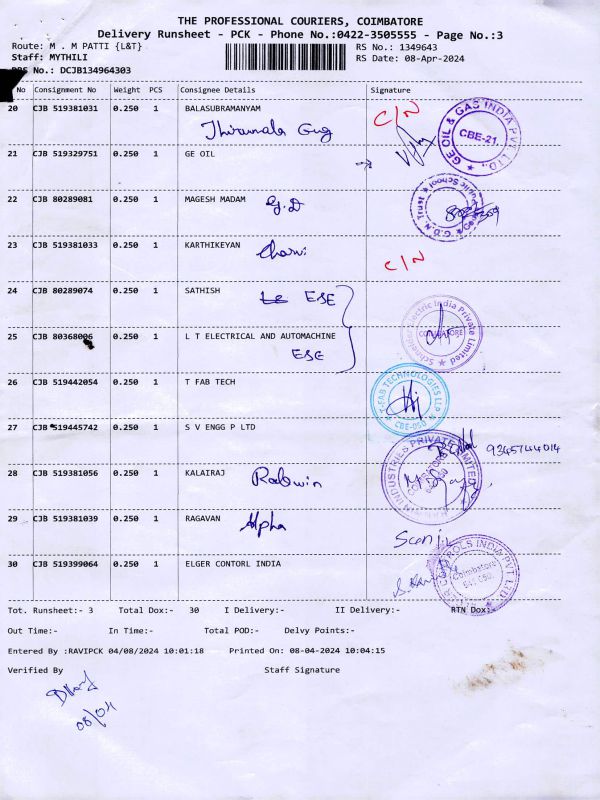 THE PROFESSIONAL COURIERS, COIMBATORE
Delivery Runsheet - PCK - Phone No.:0422-3505555 - Page No.:3
Route: M . M PATTI {L&T} RS No.: 1349643
Staff: MYTHILI RS Date: 08-Apr-2024
No.: DCJB134964303
No Consignment No Weight PCS Consignee Details Signature
20 CJB 519381031 0.250 1 BALASUBRAMANYAM C/N
Thirumala Gug
GE OIL & GAS INDIA PVT. LTD., CBE-21.
21 CJB 519329751 0.250 1 GE OIL
22 CJB 80289081 0.250 1 MAGESH MADAM G.D
G.D.N. Trust Public School
23 CJB 519381033 0.250 1 KARTHIKEYAN Charvi C/N
24 CJB 80289074 0.250 1 SATHISH ESE
Schneider Electric India Private Limited COIMBATORE
25 CJB 80368006 0.250 1 L T ELECTRICAL AND AUTOMACHINE
ESE
26 CJB 519442054 0.250 1 T FAB TECH
T-FAB TECHNOLOGIES LLP CBE-050
27 CJB 519445742 0.250 1 S V ENGG P LTD
9345744014
INDUSTRIES PRIVATE LIMITED
28 CJB 519381056 0.250 1 KALAIRAJ Robwin
29 CJB 519381039 0.250 1 RAGAVAN Alpha
30 CJB 519399064 0.250 1 ELGER CONTORL INDIA
CONTROLS INDIA PVT LTD Coimbatore
Tot. Runsheet:- 3 Total Dox:- 30 I Delivery:- II Delivery:- RTN Dox:-
Out Time:- In Time:- Total POD:- Delvy Points:-
Entered By :RAVIPCK 04/08/2024 10:01:18 Printed On: 08-04-2024 10:04:15
Verified By Staff Signature
08/04